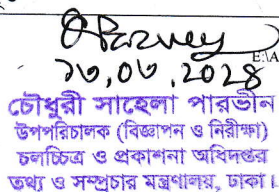 E:\A
১৩,০৩,২০২৪
চৌধুরী সাহেলা পারভীন
উপপরিচালক (বিজ্ঞাপন ও নিরীক্ষা)
চলচ্চিত্র ও প্রকাশনা অধিদপ্তর
তথ্য ও সম্প্রচার মন্ত্রণালয়, ঢাকা।